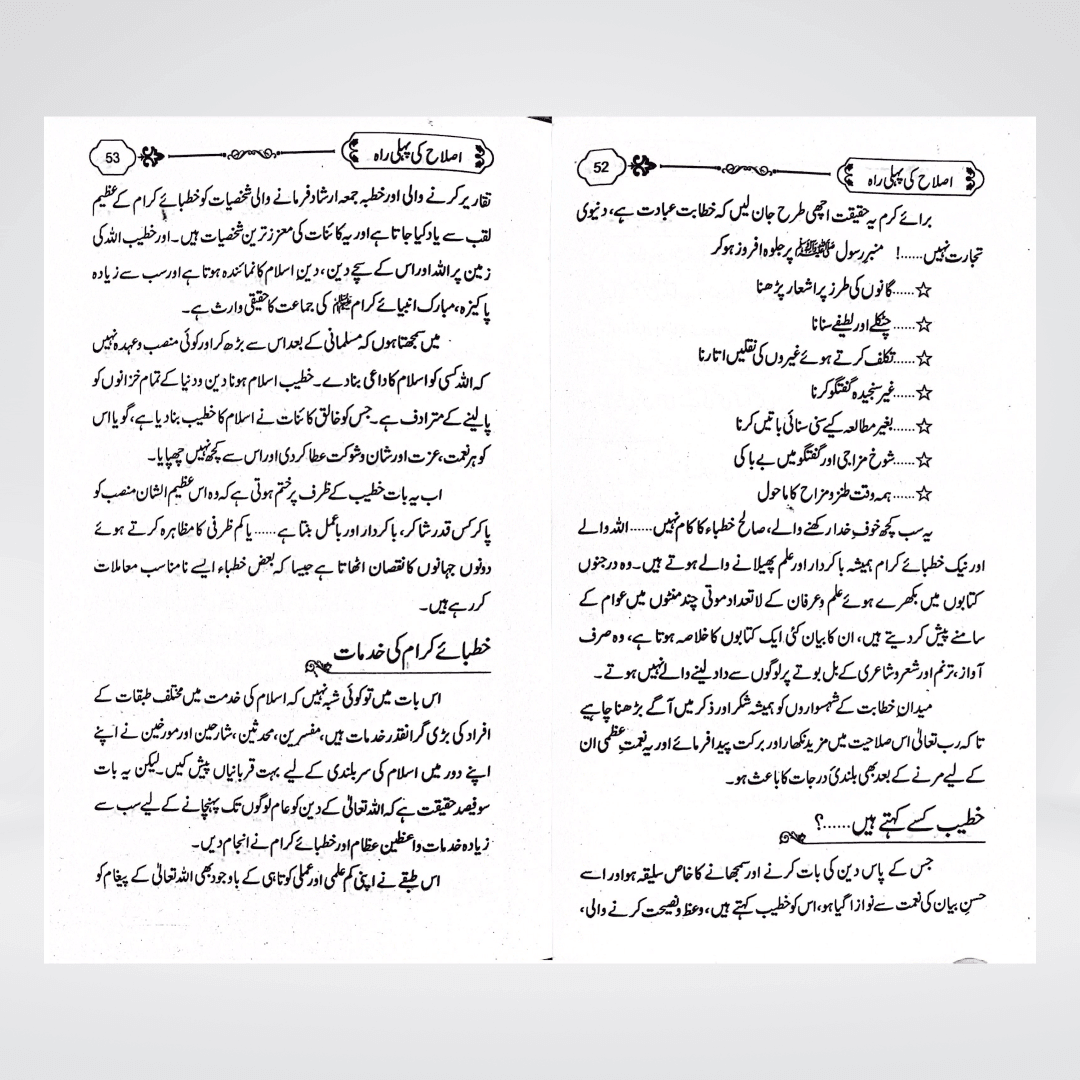 اصلاح کی پہلی راہ
52
برائے کرم یہ حقیقت اچھی طرح جان لیں کہ خطابت عبادت ہے، دنیوی
تجارت نہیں......! منبر رسول ﷺ پر جلوہ افروز ہوکر
☆......گانوں کی طرز پر اشعار پڑھنا
☆......چٹکلے اور لطیفے سنانا
☆......تکلف کرتے ہوئے غیروں کی نقلیں اتارنا
☆......غیر سنجیدہ گفتگو کرنا
☆......بغیر مطالعہ کیے سنی سنائی باتیں کرنا
☆......شوخ مزاجی اور گفتگو میں بے باکی
☆......ہمہ وقت طنز و مزاح کا ماحول
یہ سب کچھ خوفِ خدا رکھنے والے، صالح خطباء کا کام نہیں......اللہ والے
اور نیک خطبائے کرام ہمیشہ باکردار اور علم پھیلانے والے ہوتے ہیں۔ وہ درجنوں
کتابوں میں بکھرے ہوئے علم وعرفان کے لاتعداد موتی چند منٹوں میں عوام کے
سامنے پیش کردیتے ہیں، ان کا بیان کئی ایک کتابوں کا خلاصہ ہوتا ہے، وہ صرف
آواز، ترنم اور شعر وشاعری کے بل بوتے پر لوگوں سے داد لینے والے نہیں ہوتے۔
میدانِ خطابت کے شہسواروں کو ہمیشہ شکر اور ذکر میں آگے بڑھنا چاہیے
تاکہ رب تعالیٰ اس صلاحیت میں مزید نکھار اور برکت پیدا فرمائے اور یہ نعمتِ عظمیٰ ان
کے لیے مرنے کے بعد بھی بلندیٔ درجات کا باعث ہو۔
خطیب کسے کہتے ہیں......؟
جس کے پاس دین کی بات کرنے اور سمجھانے کا خاص سلیقہ ہو اور اسے
حسنِ بیان کی نعمت سے نوازا گیا ہو، اس کو خطیب کہتے ہیں، وعظ ونصیحت کرنے والی،
اصلاح کی پہلی راہ
53
تقاریر کرنے والی اور خطبہ جمعہ ارشاد فرمانے والی شخصیات کو خطبائے کرام کے عظیم
لقب سے یاد کیا جاتا ہے اور یہ کائنات کی معزز ترین شخصیات ہیں۔ اور خطیب اللہ کی
زمین پر اللہ اور اس کے سچے دین، دینِ اسلام کا نمائندہ ہوتا ہے اور سب سے زیادہ
پاکیزہ، مبارک انبیائے کرام ﷺ کی جماعت کا حقیقی وارث ہے۔
میں سمجھتا ہوں کہ مسلمانی کے بعد اس سے بڑھ کر اور کوئی منصب وعہدہ نہیں
کہ اللہ کسی کو اسلام کا داعی بنادے۔ خطیبِ اسلام ہونا دین ودنیا کے تمام خزانوں کو
پالینے کے مترادف ہے۔ جس کو خالق کائنات نے اسلام کا خطیب بنادیا ہے، گویا اس
کو ہر نعمت، عزت اور شان وشوکت عطا کردی اور اس سے کچھ نہیں چھپایا۔
اب یہ بات خطیب کے ظرف پر ختم ہوتی ہے کہ وہ اس عظیم الشان منصب کو
پا کر کس قدر شاکر، باکردار اور باعمل بنتا ہے......یا کم ظرفی کا مظاہرہ کرتے ہوئے
دونوں جہانوں کا نقصان اٹھاتا ہے جیسا کہ بعض خطباء ایسے نامناسب معاملات
کررہے ہیں۔
خطبائے کرام کی خدمات
اس بات میں تو کوئی شبہ نہیں کہ اسلام کی خدمت میں مختلف طبقات کے
افراد کی بڑی گرانقدر خدمات ہیں، مفسرین، محدثین، شارحین اور مورخین نے اپنے
اپنے دور میں اسلام کی سربلندی کے لیے بہت قربانیاں پیش کیں۔ لیکن یہ بات
سوفیصد حقیقت ہے کہ اللہ تعالیٰ کے دین کو عام لوگوں تک پہنچانے کے لیے سب سے
زیادہ خدمات واعظین عظام اور خطبائے کرام نے انجام دیں۔
اس طبقے نے اپنی کم علمی اور عملی کوتاہی کے باوجود بھی اللہ تعالیٰ کے پیغام کو